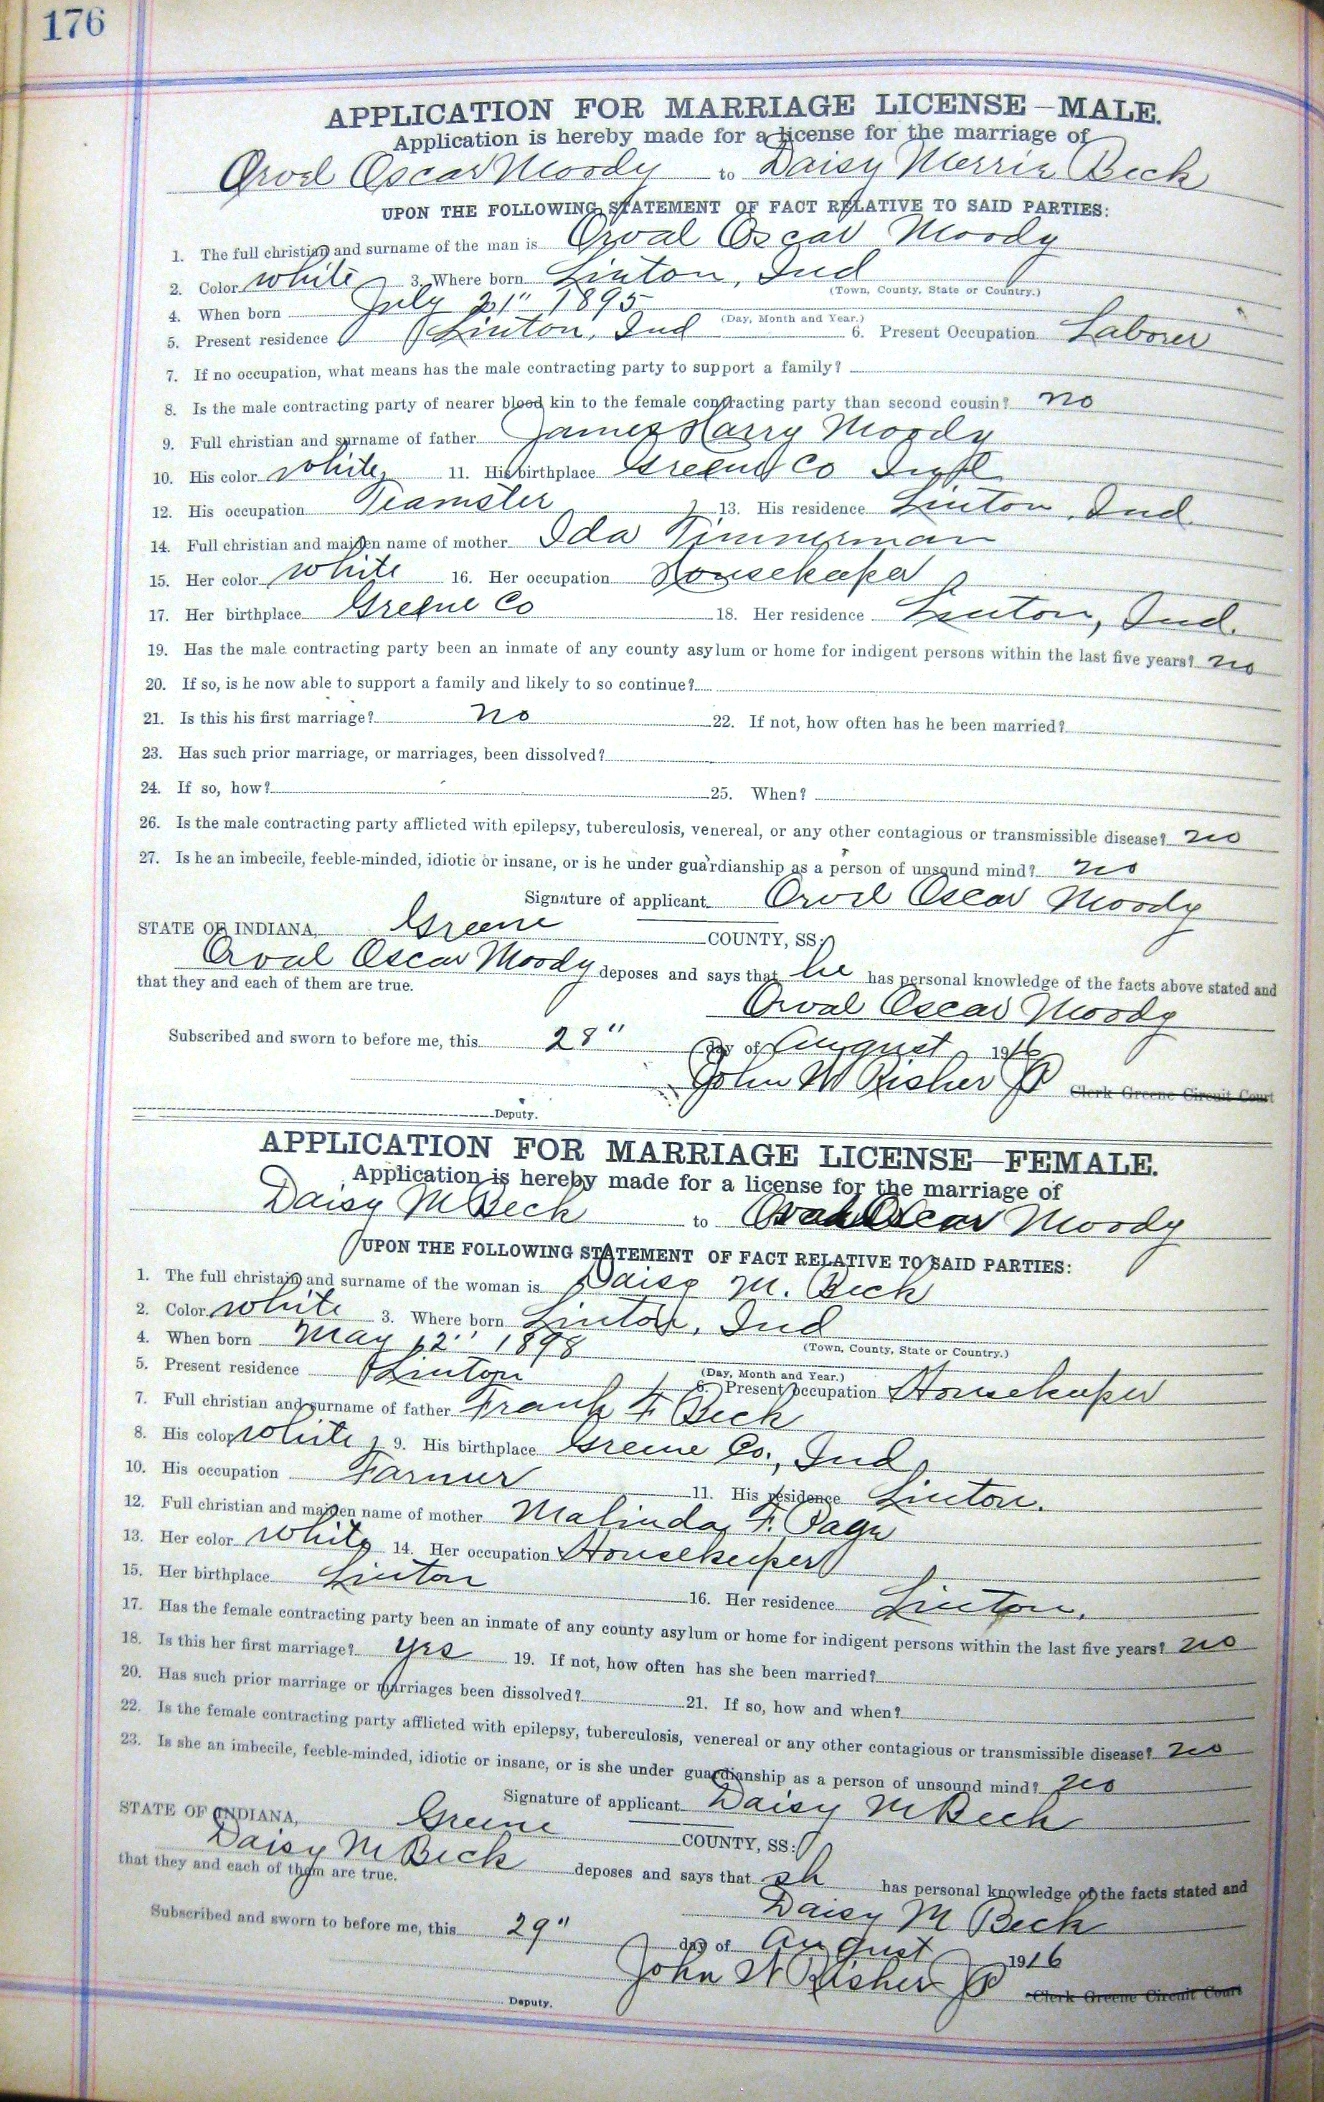 176
APPLICATION FOR MARRIAGE LICENSE—MALE.
Application is hereby made for a license for the marriage of
Orvel Oscar Moody to Daisy Merrie Beck
UPON THE FOLLOWING STATEMENT OF FACT RELATIVE TO SAID PARTIES:
1. The full christian and surname of the man is Orval Oscar Moody
2. Color white 3. Where born Linton, Ind
(Town, County, State or Country.)
4. When born July 21" 1895
(Day, Month and Year.)
5. Present residence Linton, Ind 6. Present Occupation Laborer
7. If no occupation, what means has the male contracting party to support a family?
8. Is the male contracting party of nearer blood kin to the female contracting party than second cousin? no
9. Full christian and surname of father James Harry Moody
10. His color white 11. His birthplace Greene Co Ind
12. His occupation Teamster 13. His residence Linton, Ind
14. Full christian and maiden name of mother Ida Timmerman
15. Her color white 16. Her occupation Housekeeper
17. Her birthplace Greene Co 18. Her residence Linton, Ind.
19. Has the male contracting party been an inmate of any county asylum or home for indigent persons within the last five years? no
20. If so, is he now able to support a family and likely to so continue?
21. Is this his first marriage? no 22. If not, how often has he been married?
23. Has such prior marriage, or marriages, been dissolved?
24. If so, how? 25. When?
26. Is the male contracting party afflicted with epilepsy, tuberculosis, venereal, or any other contagious or transmissible disease? no
27. Is he an imbecile, feeble-minded, idiotic or insane, or is he under guardianship as a person of unsound mind? no
Signature of applicant Orvel Oscar Moody
STATE OF INDIANA, Greene COUNTY, SS:
Orval Oscar Moody deposes and says that he has personal knowledge of the facts above stated and
that they and each of them are true.
Orval Oscar Moody
Subscribed and sworn to before me, this 28" day of August 1916
John W Risher JP Clerk Greene Circuit Court
Deputy.
APPLICATION FOR MARRIAGE LICENSE—FEMALE.
Application is hereby made for a license for the marriage of
Daisy M Beck to Orval Oscar Moody
UPON THE FOLLOWING STATEMENT OF FACT RELATIVE TO SAID PARTIES:
1. The full christain and surname of the woman is Daisy M. Beck
2. Color white 3. Where born Linton, Ind
(Town, County, State or Country.)
4. When born May 12" 1898
(Day, Month and Year.)
5. Present residence Linton 6. Present occupation Housekeeper
7. Full christian and surname of father Frank F Beck
8. His color white 9. His birthplace Greene Co., Ind
10. His occupation Farmer 11. His residence Linton.
12. Full christian and maiden name of mother Malinda F. Page
13. Her color white 14. Her occupation Housekeeper
15. Her birthplace Linton 16. Her residence Linton.
17. Has the female contracting party been an inmate of any county asylum or home for indigent persons within the last five years? no
18. Is this her first marriage? yes 19. If not, how often has she been married?
20. Has such prior marriage or marriages been dissolved? 21. If so, how and when?
22. Is the female contracting party afflicted with epilepsy, tuberculosis, venereal or any other contagious or transmissible disease? no
23. Is she an imbecile, feeble-minded, idiotic or insane, or is she under guardianship as a person of unsound mind? no
Signature of applicant Daisy M Beck
STATE OF INDIANA, Greene COUNTY, SS:
Daisy M Beck deposes and says that sh has personal knowledge of the facts stated and
that they and each of them are true.
Daisy M Beck
Subscribed and sworn to before me, this 29" day of August 1916
John W Risher JP Clerk Greene Circuit Court
Deputy.